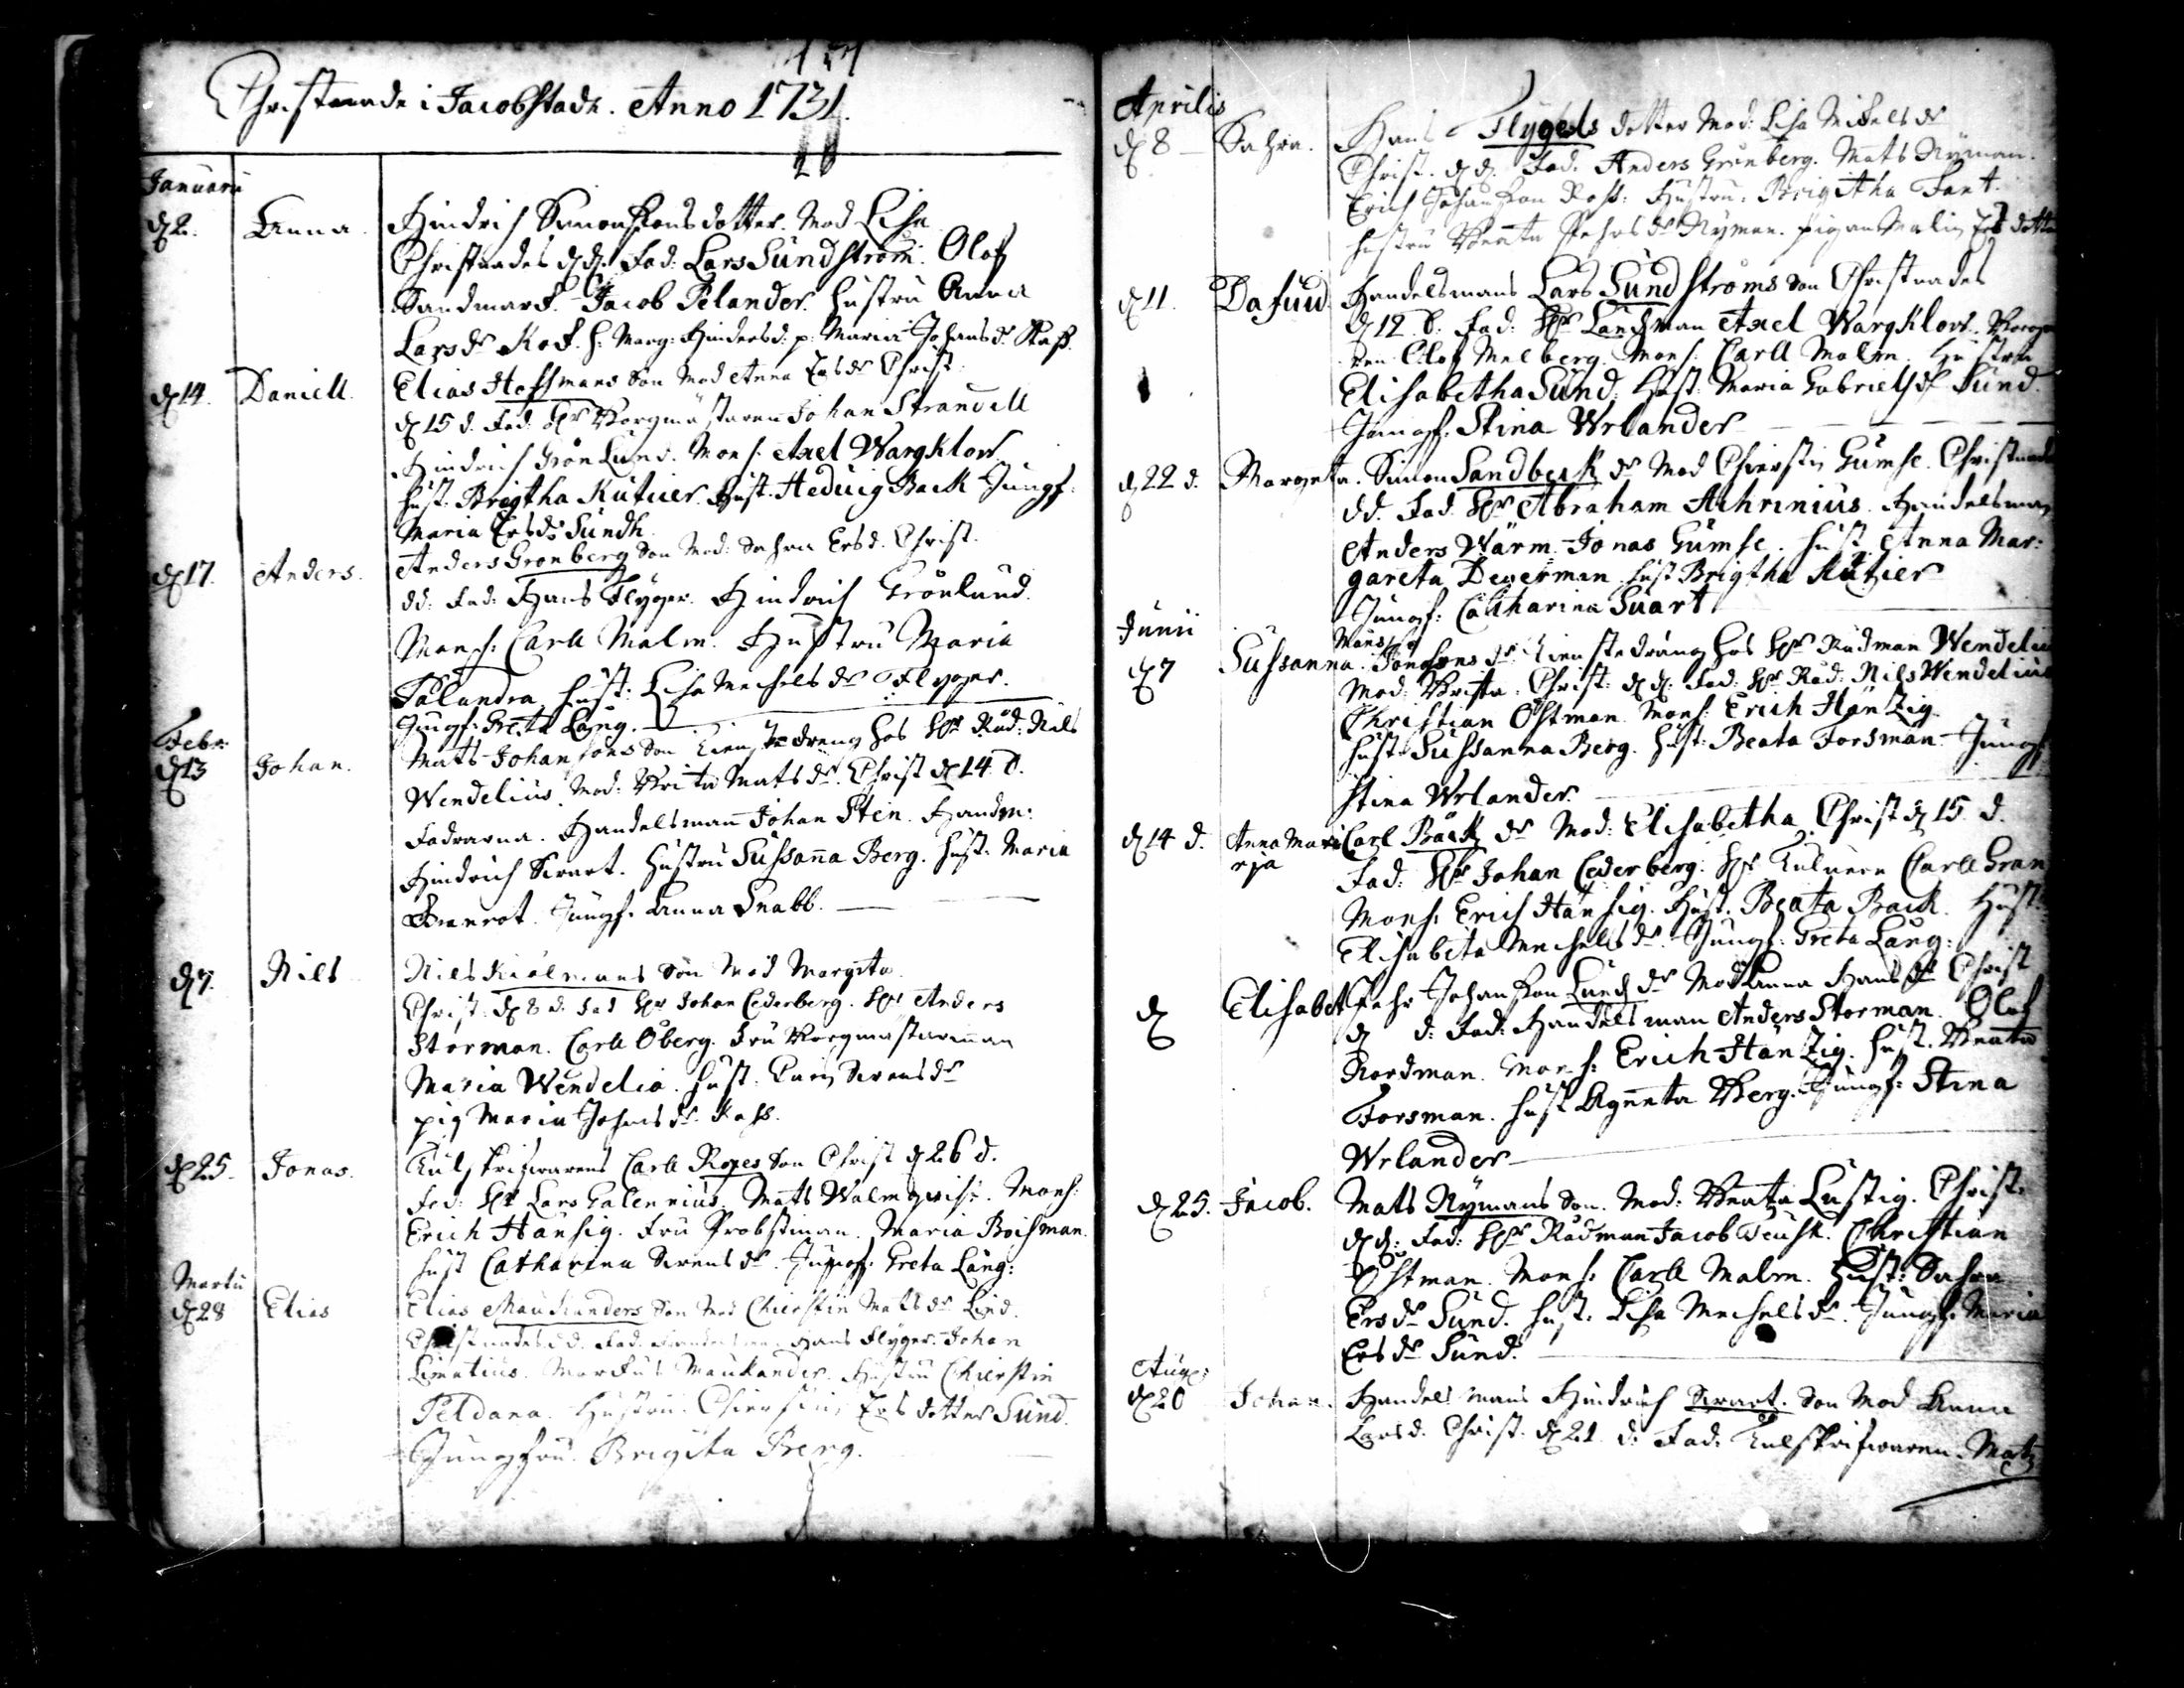 Christnade i Jacobstadh. Anno 1731.
Januarii
d 2. Anna. Hindrich Simonssons dotter. Mod Lisa
Christnades d d. Fad: Lars Sundström. Olof
Sandmark. Jacob Pelander. Hustru Anna
Larsdr Kock. h. Marg: Hindersd: p: Maria Johansdr
d 14. Daniell. Elias Hoffmans Son Mod Anna Ersdr Christ.
d 15 d. Fad: Hr Borgmästaren Johan Strandell
Hindrich Grönlund. Mons. Axel Wargklow
hust. Brigtha Kutuer. Hust. Heduig Back Jungf:
Maria Ersdr Sundh.
d 17. Anders. Anders Gronberg Son Mod: Sahra Ersd. Christ.
dd: Fad: Hans Flyger. Hindrich Grönlund.
Mons: Carll Malm. Hustru Maria
hust: Lisa Michelsdr Flyger.
Jungf: Greta Lang.
Febr:
d 13 Johan. Mats Johanssons Son hos Hr Råd: Nils
Wendelius. Mod: Brita Matsdr. Christ d 14 d.
Fadrarna. Handelsman Johan Sten. Handm:
Hindrich Swart. Hustru Sussanna Berg. hust. Maria
Jungf. Anna Snabb.
d 7. Nils Nils Kiölmans Son Mod Margita
Christ. d 8 d. Fad Hr Johan Cederberg. Hr Anders
Storman. Carll Öberg. Fru Borgmästarinnan
Maria Wendelia. hust. Carin
pig Maria Johansdr.
d 25. Jonas. Tulskrifwarens Carll Ropes Son Christ d 26 d.
Fad: Hr Lars Galennius. Mats Malmqwist. Mons:
Erich Hansig. Fru Probstinan. Maria Boisman.
hust Catharina Jungf. Greta Lang:
Martii
d 28 Elias Elias Maukanders Son Mod Chierstin Matsdr Lind.
Christnades d d. Fad. Hans Flyger. Johan
Limatius. Markus Maukander. Hustru Chierstin
Peldana. Hustru. Ers dotter Sund.
Jungfru. Brigita Berg.
Aprilis
d 8 Sahra. Hans Flygels dotter Mod: Lisa Mickelsdr
Christ. d d. Fad: Anders Grönberg. Mats Nyman.
Erich Johansson Ross. Hustru. Brigitha Fant.
hustru Beata Pehrsdr Nyman. pigan Malin Ers dotter
d 11. Dafuid Handelsmans Lars Sundströms Son Christnades
d 12 d. Fad: Hr Landsman Axel Wargklow.
Olof Melberg. Mons. Carll Malm. Hustru
Elisabetha Sund. Hust. Maria Gabrielsdr Sund.
Jungf. Stina Wrlander
d 22 d. Margreta. Simon Sandbeck dr Mod Chierstin Gumse. Christnades
dd. Fad. Hr Abraham Achrinius. Handelsman
Anders Wärm. Jonas Gumse. hust. Anna Mar:
gareta Degerman. hust Brigtha Kutzier
Jungf: Catharina Suart
Junii
d 7 Sussanna. Jonssons dr. hos Hr Rådman Wendelius
Mod: Brita. Christ: d d. Fad. Hr Råd: Nils Wendelius
Christian Östman. Mons. Erich Hänzig
hust. Sussanna Berg. hust. Beata Forsman. Jungf
Stina Wrlander.
d 14 d. Anna Mari Carl Bäck dr Mod: Elisabetha. Christ d 15 d.
rja Fad: Hr Johan Cederberg. Hr Carll Gran
Mons. Erich Hänsig. Hust. Beata Back. Hust:
Elisabeta Michelsdr. Jungf: Greta Lang:
d Elisabet Pehr Johansson Lund dr Mod Anna Hansdr Christ
d d: Fad: Handelsman Anders Storman. Olof
Nordman. Mons: Erich Hänzig. Hust. Beata
Forsman. hust Agneta Berg. Jungf: Stina
Wrlander
d 25. Jacob. Mats Nymans Son. Mod: Beata Lustig. Christ.
d d: Fad: Hr Rådman Jacob Teusk. Christian
Östman. Mons. Carll Malm. Hust: Sahra
Ersdr Sund. hust. Lisa Michelsdr. Jungf. Maria
Ersdr Sund.
Aug:
d 20 Johan. Handelsmans Hindrich Swart. Son Mod Anna
Larsd. Christ. d 21 d. Fad. Tulskrifwaren. Mats